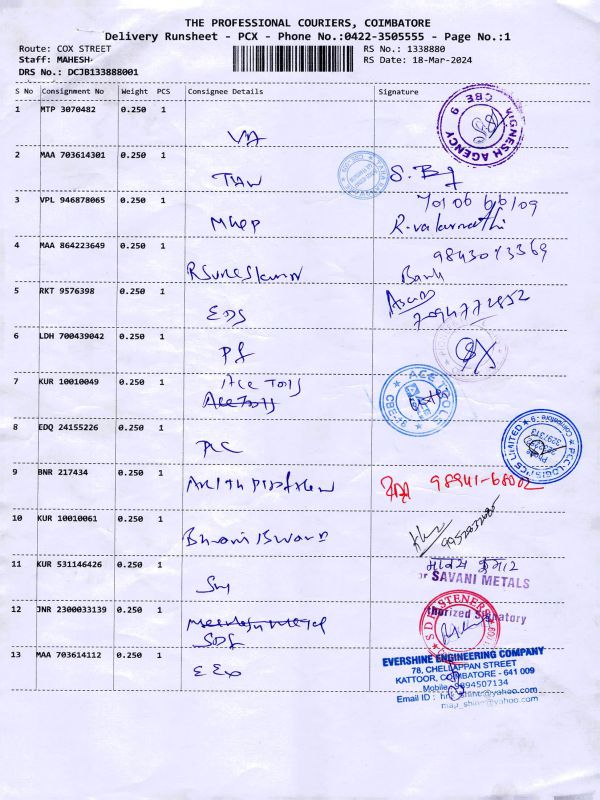 THE PROFESSIONAL COURIERS, COIMBATORE
Delivery Runsheet - PCX - Phone No.:0422-3505555 - Page No.:1
Route: COX STREET
RS No.: 1338880
Staff: MAHESH
RS Date: 18-Mar-2024
DRS No.: DCJB133888001
S No Consignment No Weight PCS Consignee Details Signature
1 MTP 3070482 0.250 1
VA
VIGNESH AGENCY CBE-9
2 MAA 703614301 0.250 1
TAW
S. Bg
3 VPL 946878065 0.250 1
70106 66109
R.valarmathi
4 MAA 864223649 0.250 1
RSureshkumar
9843073369
Bank
5 RKT 9576398 0.250 1
EDS
7094772852
6 LDH 700439042 0.250 1
Pf
7 KUR 10010049 0.250 1
Ace Tools
Ace Tools
ACE TOOLS
8 EDQ 24155226 0.250 1
PLC
PCC LOGISTICS PRIVATE LIMITED Coimbatore - 9
9 BNR 217434 0.250 1
98941-68002
10 KUR 10010061 0.250 1
11 KUR 531146426 0.250 1
Sm
For SAVANI METALS
12 JNR 2300033139 0.250 1
SDF
Authorized Signatory
S.D FASTENERS
13 MAA 703614112 0.250 1
E Ex
EVERSHINE ENGINEERING COMPANY
78, CHELLAPPAN STREET
KATTOOR, COIMBATORE - 641 009
Mobile: 9894507134
Email ID :
map_shine@yahoo.com